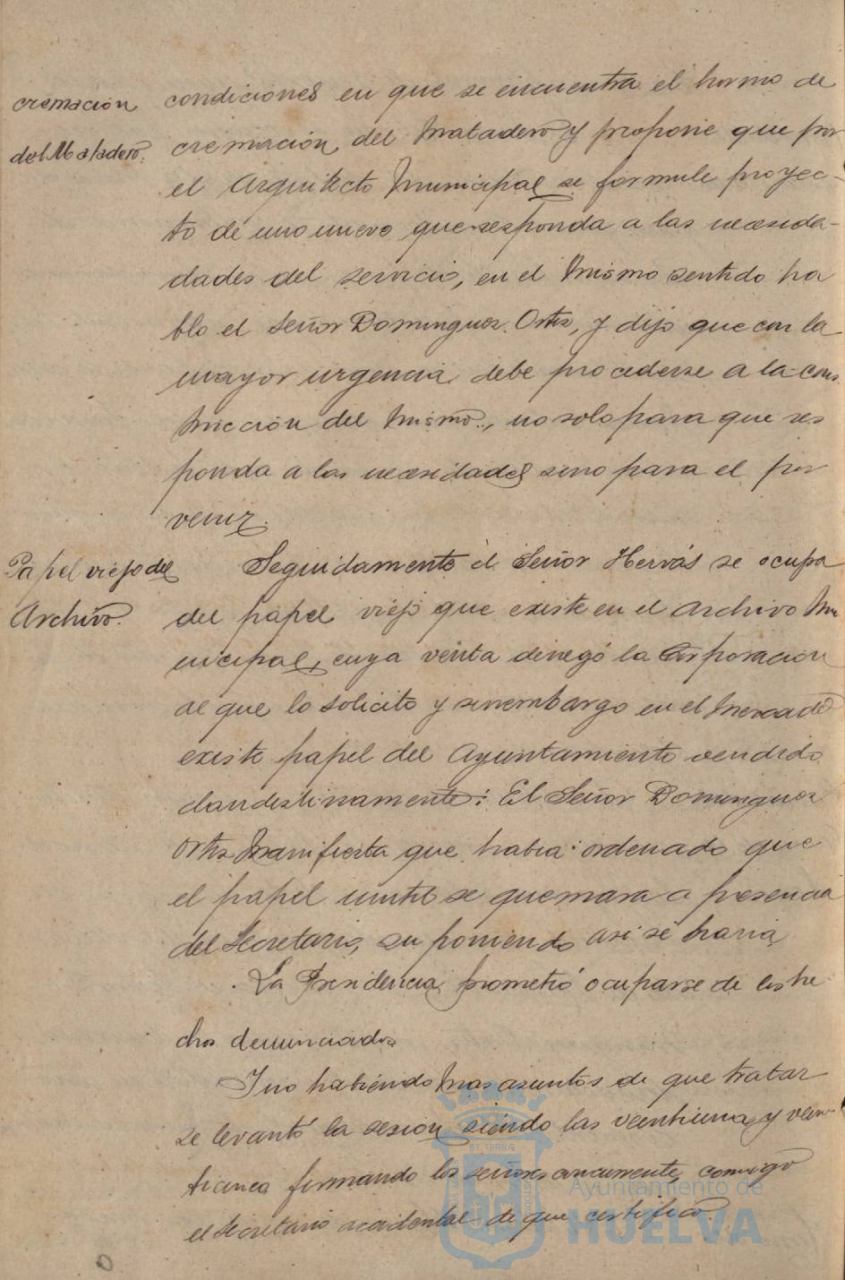 cremación
del Matadero.
condiciones en que se encuentra el horno de
cremación del Matadero y propone que por
el Arquitecto Municipal se formule proyec-
to de uno nuevo que responda a las necesida-
dades del servicio, en el mismo sentido ha
blo el Señor Dominguez Ortiz, y dijo que con la
mayor urgencia debe procederse a la cons
trucción del mismo, no solo para que res
ponda a las necesidades sino para el por
venir.
Papel viejo del
Archivo.
Seguidamente el Señor Hervás se ocupa
del papel viejo que existe en el Archivo Mu
nicipal, cuya venta denegó la Corporación
al que lo solicito y sinembargo en el Mercado
existe papel del Ayuntamiento vendido
clandestinamente: El Señor Dominguez
Ortiz Manifiesta que habia ordenado que
el papel inutil se quemara a presencia
del Secretario, suponiendo asi se haria,
La Presidencia prometió ocuparse de los he
chos denunciados
Y no habiendo mas asuntos de que tratar
se levantó la sesión siendo las veintiuna y vein
ticinco firmando los señores concurrentes, conmigo
el Secretario accidental de que certifico
Ayuntamiento de
HUELVA